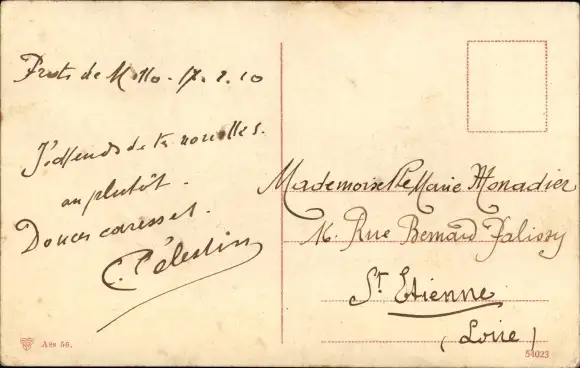 Prats de Mollo. 17. 2. 10
J'attends de tes nouvelles.
au plutôt.
Douces caresses.
C. Célestin
Mademoiselle Marie Monadier
16. Rue Bernard Palissy
St Etienne
(Loire)
Ass 56.
54023